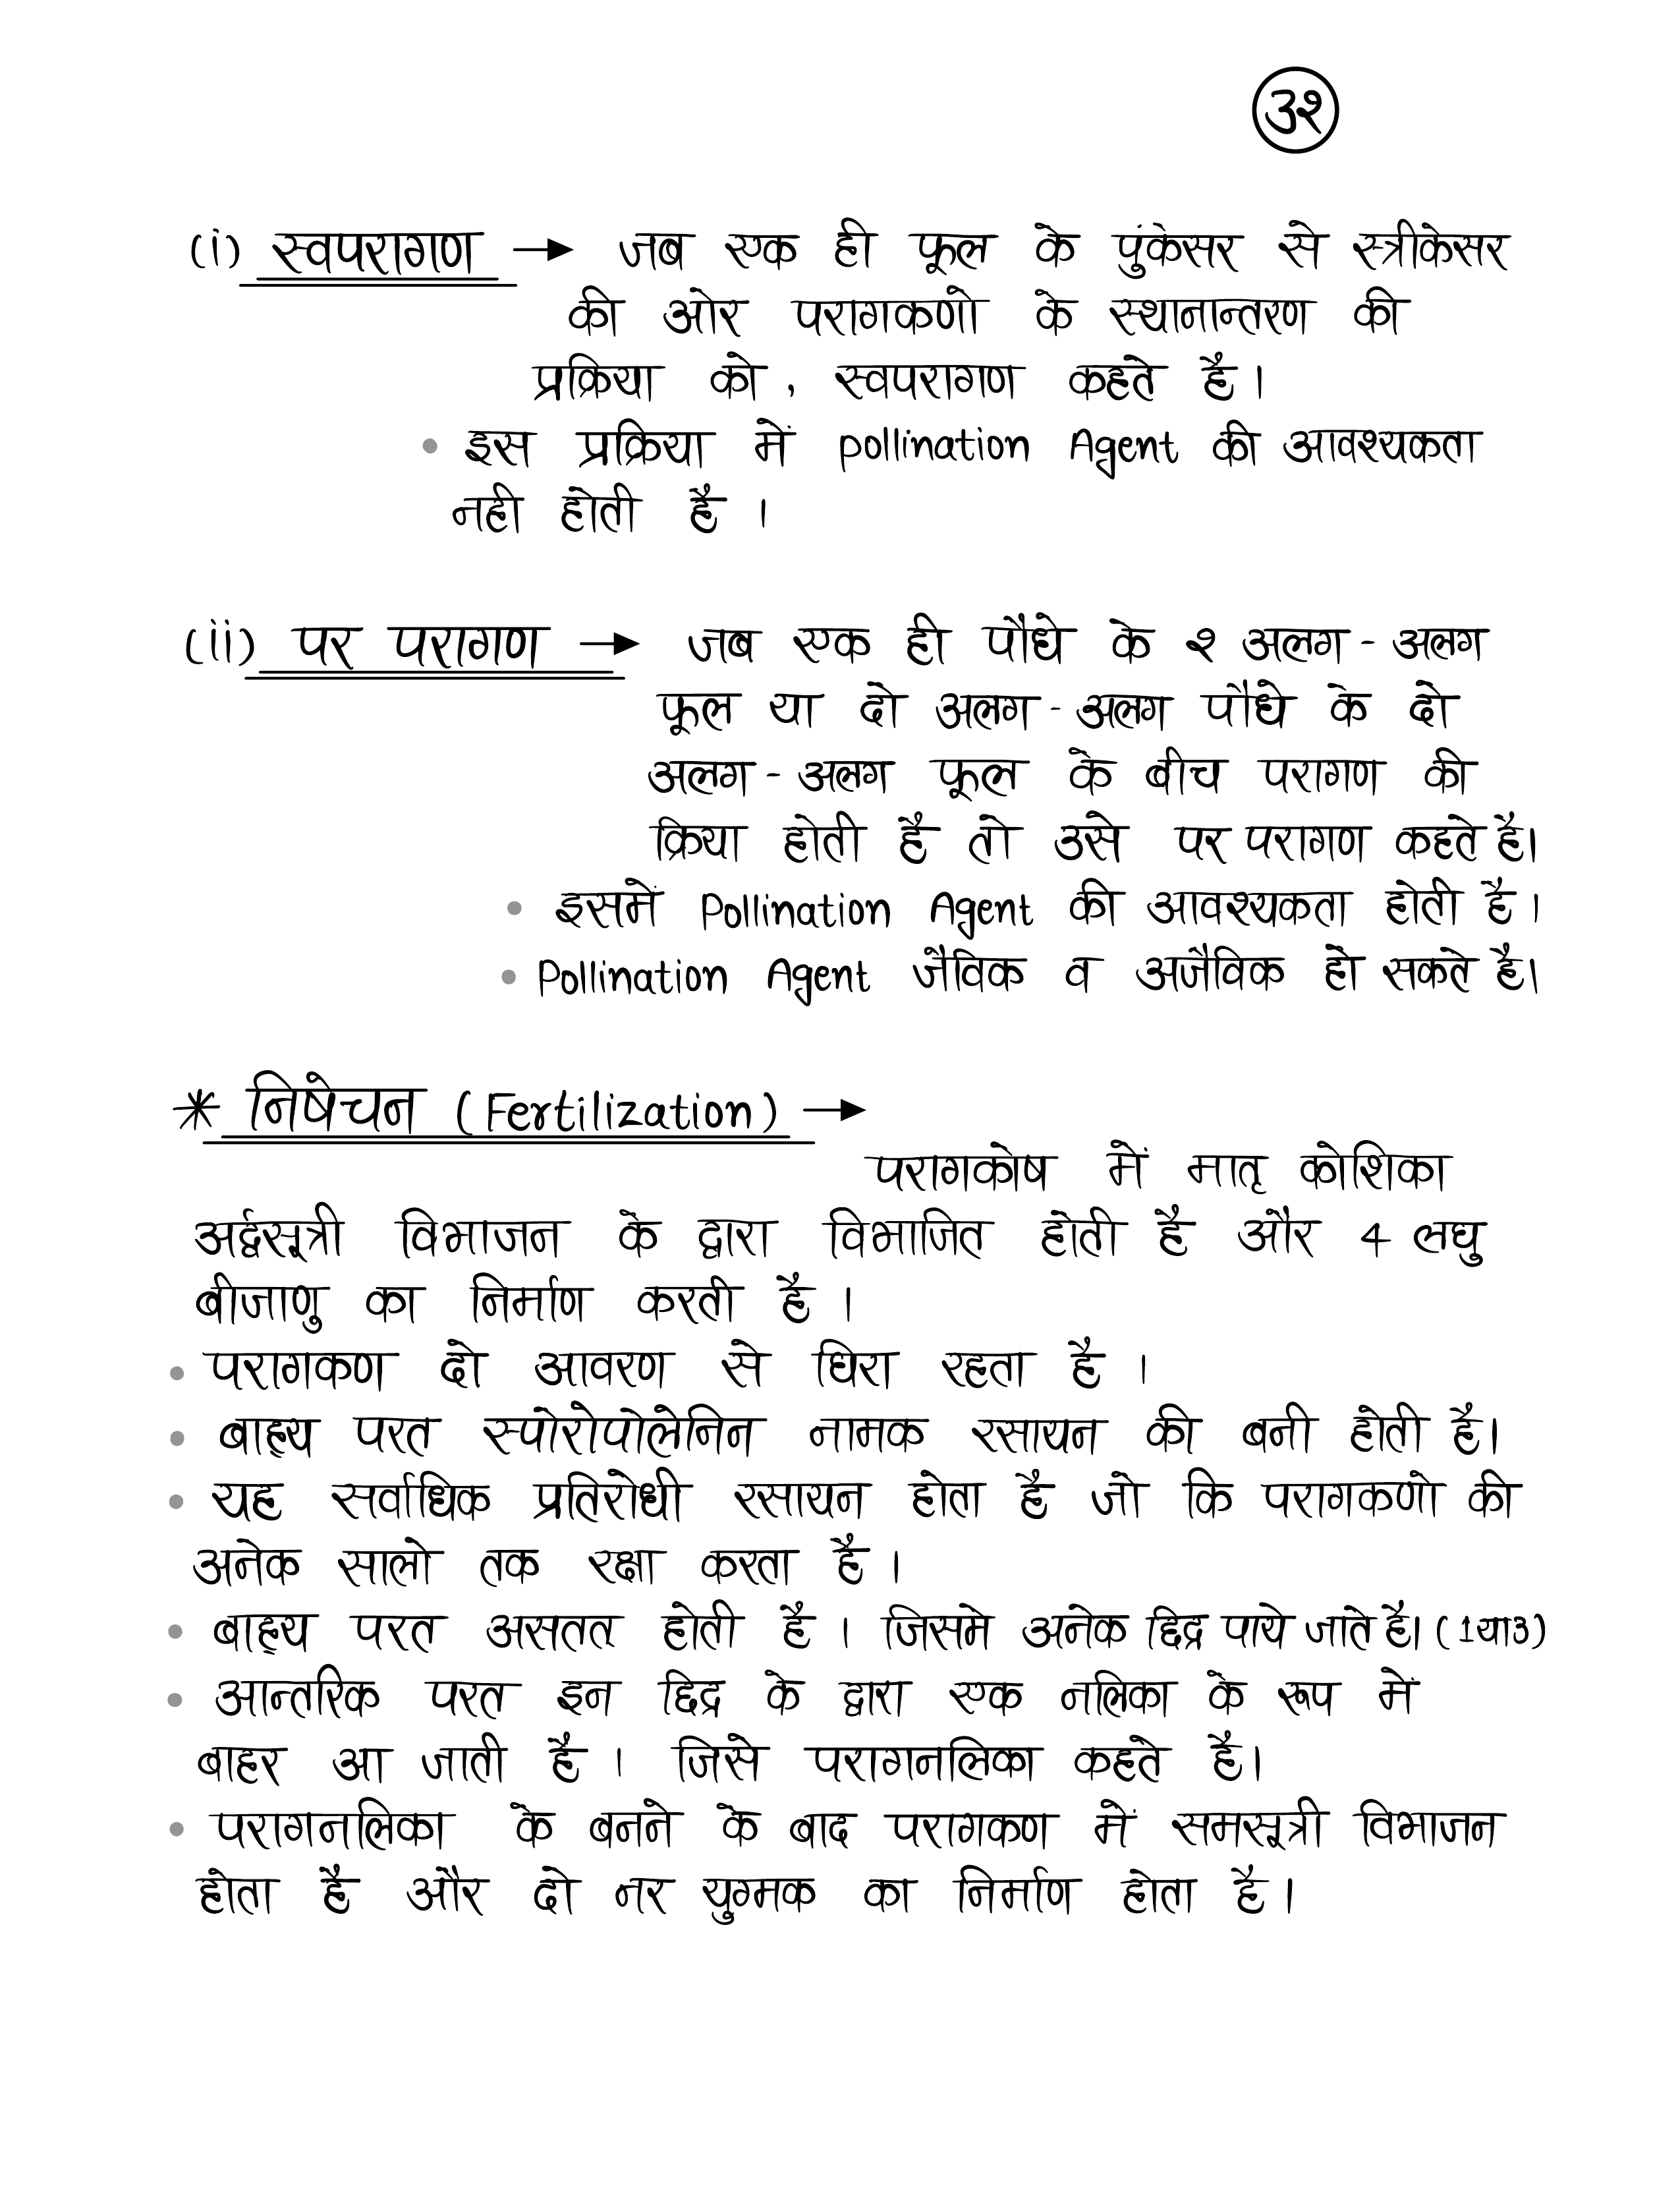 32
(i) स्वपरागण → जब एक ही फूल के पुंकेसर से स्त्रीकेसर
की ओर परागकणो के स्थानान्तरण की
प्रक्रिया को, स्वपरागण कहते है।
• इस प्रक्रिया में pollination Agent की आवश्यकता
नही होती है ।
(ii) पर परागण → जब एक ही पौधे के २ अलग - अलग
फूल या दो अलग - अलग पौधे के दो
अलग - अलग फूल के बीच परागण की
क्रिया होती है तो उसे पर परागण कहते है।
• इसमें Pollination Agent की आवश्यकता होती है ।
• Pollination Agent जैविक व अजैविक हो सकते है।
* निषेचन (Fertilization) →
परागकोष में मातृ कोशिका
अर्द्वसूत्री विभाजन के द्वारा विभाजित होती है और 4 लघु
बीजाणु का निर्माण करती है ।
• परागकण दो आवरण से घिरा रहता है ।
• बाह्य परत स्पोरोपोलेनिन नामक रसायन की बनी होती है।
• यह सर्वाधिक प्रतिरोधी रसायन होता है जो कि परागकणो की
अनेक सालो तक रक्षा करता है ।
• बाह्य परत असतत् होती है । जिसमे अनेक छिद्र पाये जाते है। (1या3)
• आन्तरिक परत इन छिद्र के द्वारा एक नलिका के रूप में
बाहर आ जाती है । जिसे परागनलिका कहते है।
• परागनलिका के बनने के बाद परागकण में समसूत्री विभाजन
होता है और दो नर युग्मक का निर्माण होता है।